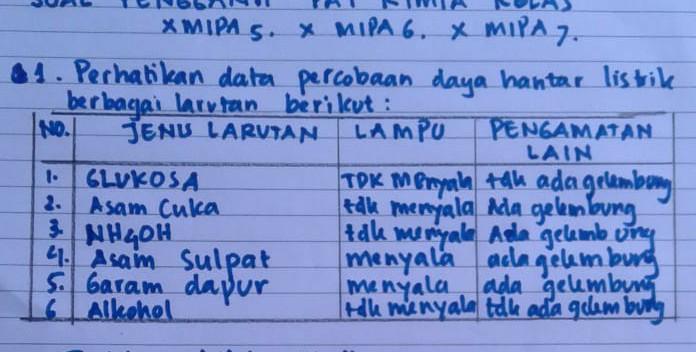 SOAL PENGGANTI PAT KIMIA KELAS
X MIPA 5. X MIPA 6. X MIPA 7.
1. Perhatikan data percobaan daya hantar listrik
berbagai larutan berikut :
NO. JENIS LARUTAN LAMPU PENGAMATAN
LAIN
1. GLUKOSA TDK Menyala tdk ada gelembung
2. Asam Cuka tdk menyala Ada gelembung
3. NH4OH tdk menyala Ada gelembung
4. Asam Sulpat menyala ada gelembung
5. Garam dapur menyala ada gelembung
6 Alkohol tdk menyala tdk ada gelembung